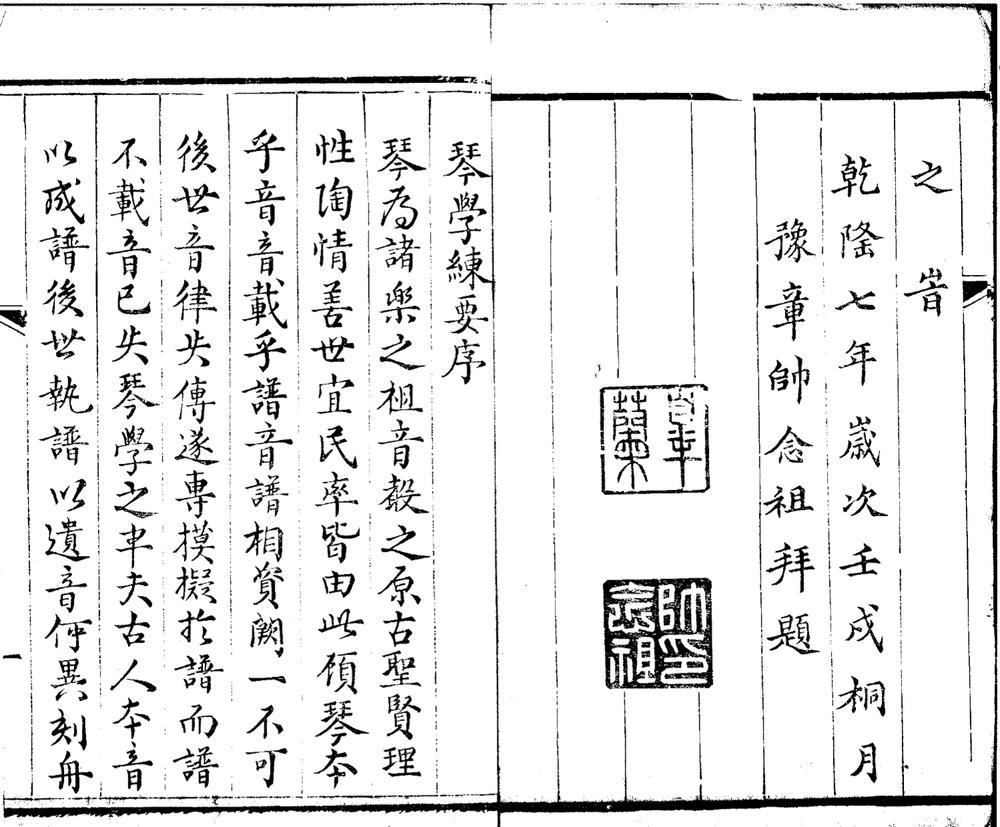 之旹
乾隆七年歲次壬戌桐月
豫章帥念祖拜題
蘭皋
帥印念祖
琴學練要序
琴為諸樂之祖音聲之原古聖賢理
性陶情善世宜民率皆由此顧琴本
乎音音載乎譜音譜相資闕一不可
後世音律失傳遂專摸擬於譜而譜
不載音已失琴學之半夫古人本音
以成譜後世執譜以遺音何異刻舟